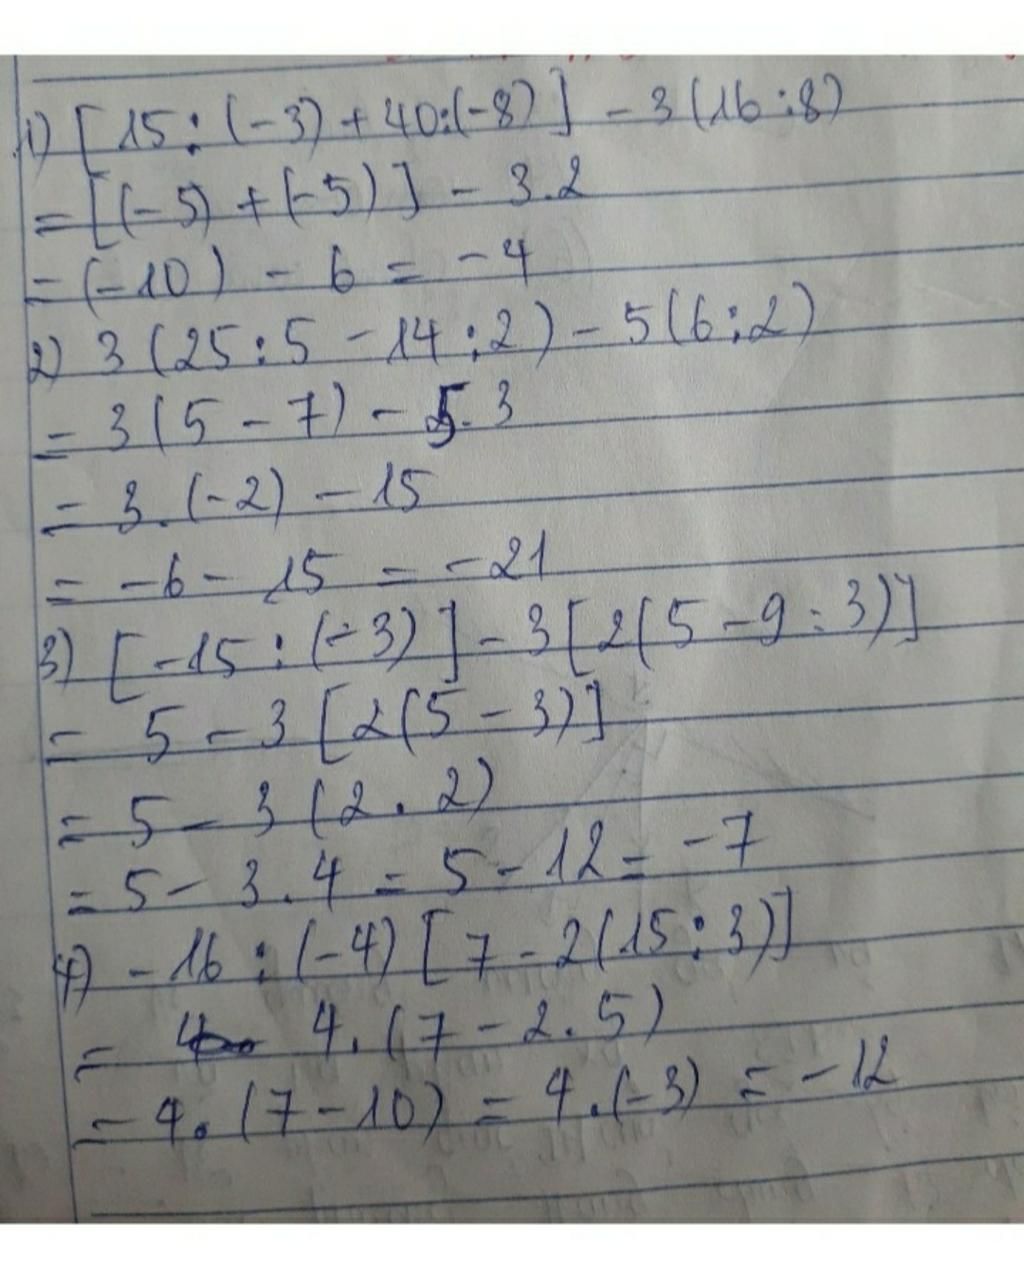 1) [15 : (-3) + 40:(-8)] - 3(16:8)
= [(-5) + (-5)] - 3.2
= (-10) - 6 = -4
2) 3 (25:5 - 14:2) - 5(6:2)
= 3(5 - 7) - 5.3
= 3.(-2) - 15
= -6 - 15 = -21
3) [-15 : (-3)] - 3[2(5 - 9 : 3)]
= 5 - 3 [2(5 - 3)]
= 5 - 3 (2.2)
= 5 - 3.4 = 5 - 12 = -7
4) -16 : (-4) [7 - 2(15:3)]
= 4.(7 - 2.5)
= 4.(7 - 10) = 4.(-3) = -12